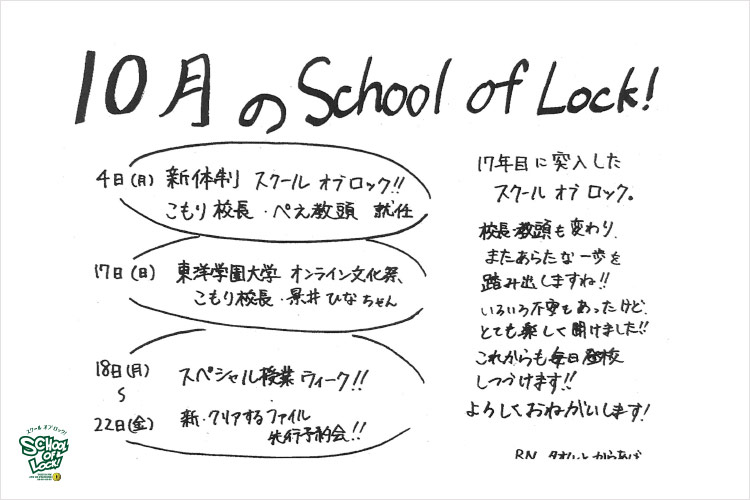 10月のSchool of Lock!
4日(月) 新体制 スクール オブ ロック!!
こもり校長・ぺえ教頭 就任
17日(日) 東洋学園大学 オンライン文化祭、
こもり校長・景井ひなちゃん
18日(月)
S
22日(金)
スペシャル授業ウィーク!!
新・クリアするファイル
先行予約会!!
17年目に突入した
スクール オブ ロック。
校長教頭も変わり、
またあらたな一歩を
踏み出しますね!!
いろいろ不安もあったけど、
とても楽しく聞けました!!
これからも毎日登校
しつづけます!!
よろしくおねがいします!
RN
スクール オブ ロック!
SCHOOL
OF
LOCK!